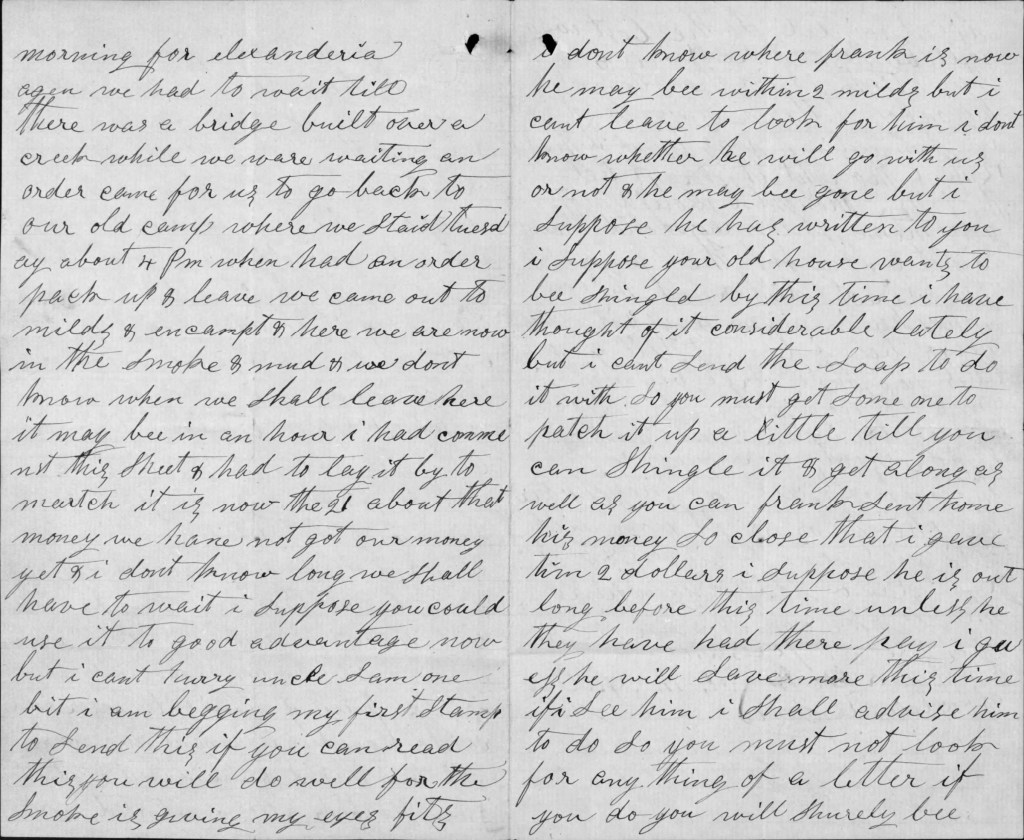 morning for elexanderia
agen we had to wait till
there was a bridge built over a
creek while we ware waiting an
order came for us to go back to
our old camp where we staid tuesd
ay about 4 Pm when had an order
pack up & leave we came out to
milds & encampt & here we are now
in the smoke & mud & we dont
know when we shall leave here
it may bee in an hour i had comme
nst this sheet & had to lay it by to
martch it is now the 21 about that
money we hane not got our money
yet & i dont know long we shall
have to wait i suppose you could
use it to good advantage now
but i cant hurry uncle sam one
bit i am begging my first stamp
to send this if you can read
this you will do well for the
smoke is giving my eyes fits
i dont know where frank is now
he may bee within 2 milds but i
cant leave to look for him i dont
know whether he will go with us
or not & he may bee gone but i
suppose he has written to you
i suppose your old house wants to
bee shingld by this time i have
thought of it considerable lately
but i cant send the soap to do
it with so you must get some one to
patch it up a little till you
can shingle it & get along as
well as you can frank sent home
his money so close that i gave
him 2 dollars i suppose he is out
long before this time unless he
they have had there pay i gu
ess he will save more this time
if i see him i shall advise him
to do so you must not look
for any thing of a letter if
you do you will shurely bee